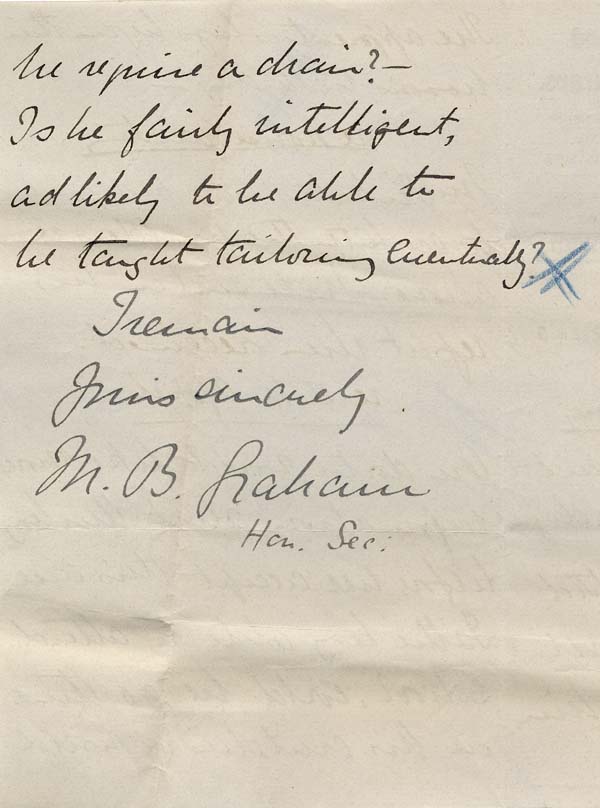 he require a chair? —
Is he fairly intelligent,
and likely to be able to
be taught tailoring eventually?
I remain
Yours sincerely.
M. B. Graham
Hon. Sec: